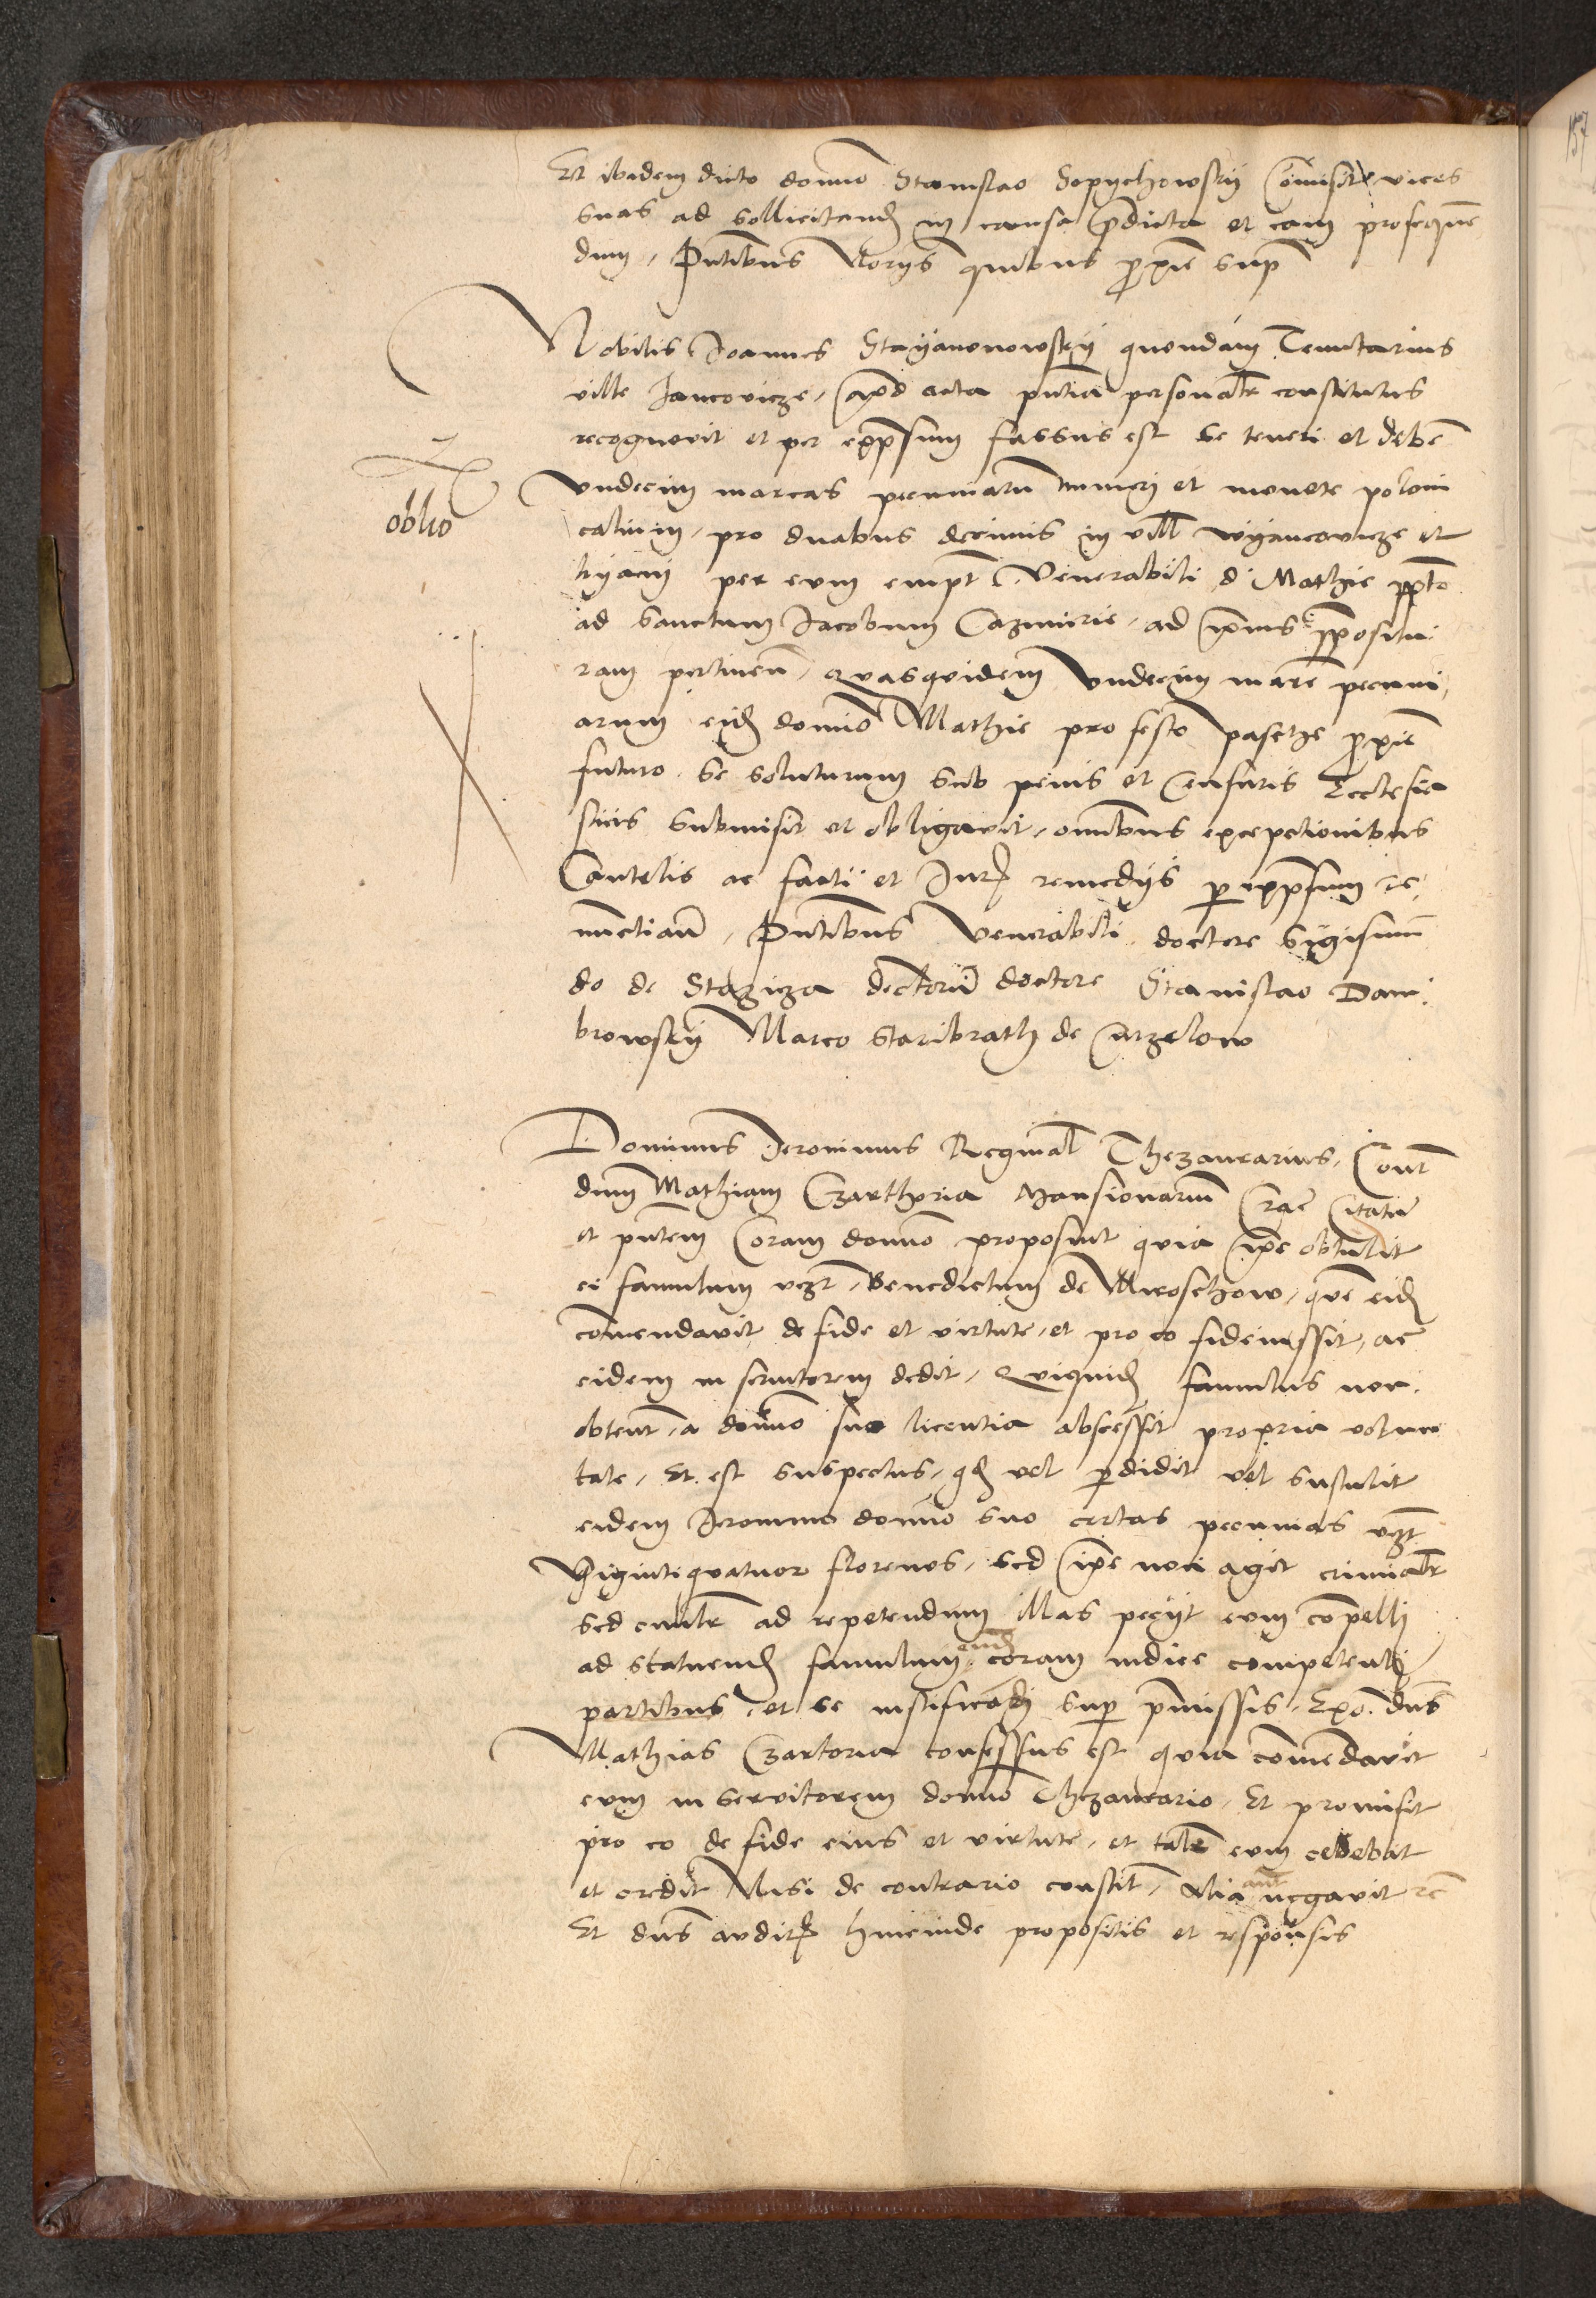 Et ibidem dicto domino Stanislao Sopychowskij Comisit vices
suas ad sollicitand in causa pdicta et eam prosequen
dum, Pntibus Notorijs quibus proxie sup
Nobilis Joannes quondam Tenutarius
ville Jancovicze, apud acta pntia personalr constitutus
recognovit et per expssum fassus est se teneri et debe
undecim marcas pecuniaru numeri et monete poloni
calium, pro duabus decimis in vill wyancovicze et
per eum empt Venerabili d. Mathie ppto
ad Sanctum Jacobum Cazimirie, ad ipsius ppositu
ram pertinen, Quasquidem Undecim marc pecuni
arum eid domino Mathie pro festo pasche proxie
futuro se soluturum sub penis et Censuris Ecclesia
sticis submisit et obligavit, omnibus exceptionibus
Cautelis ac facti et Juris remedijs p expssum re
nuctiand, Pntibus Venerabili doctore Sigismun
do de Stazicza dectoru doctore Stanislao Dam
browskij Marco Staribrath de
oblio
Dominus Jeronimus Regnal Thezaurarius, Contr
dnm Mathiam Czarthoria Mansionarium Crac Citatu
et pntem Coram domino proposuit quia ipse obtulit
ei famulum vczt, Benedictum de Mroschow, que eid
comendavit de fide et virtute, et pro eo fideiussit, ac
eidem in servitorem dedit, Quiquid famulus non
obtent, a domino suo licentia abscessit propria volun
tate, Et est suspectus, qd vel pdidit vel sustulit
eidem Jeronimo domino suo certas pecunias vczt
Vigintiquatuor florenos, sed ipse non agit criminalr
sed civilr ad repetendum illas petijt eum compelli
ad statuend famulum eund coram iudice competenti
partibus, et se iustificand sup pmissis, Exo. dns
Mathias Czartoria confessus est quia comendavit
eum in servitorem domino Thezaurario, Et promisit
pro eo de fide eius et virtute, et tale eum
et credit Nisi de contrario constit, Alia aut negavit rc
Et dns audit hincinde propositis et responsis
157